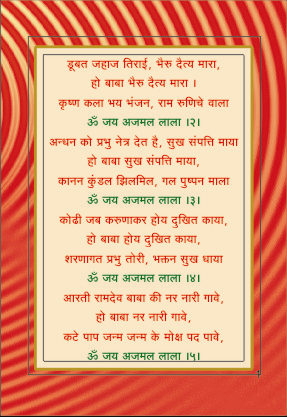 डूबत जहाज तिराई, भैरु दैत्य मारा,
हो बाबा भैरु दैत्य मारा ।
कृष्ण कला भय भंजन, राम रुणिचे वाला
ॐ जय अजमल लाला ।२।
अन्धन को प्रभु नेत्र देत है, सुख संपत्ति माया
हो बाबा सुख संपत्ति माया,
कानन कुंडल झिलमिल, गल पुष्पन माला
ॐ जय अजमल लाला ।३।
कोढी जब करुणाकर होय दुखित काया,
हो बाबा होय दुखित काया,
शरणागत प्रभु तोरी, भक्तन सुख धाया
ॐ जय अजमल लाला ।४।
आरती रामदेव बाबा की नर नारी गावे,
हो बाबा नर नारी गावे,
कटे पाप जन्म जन्म के मोक्ष पद पावे,
ॐ जय अजमल लाला ।५।